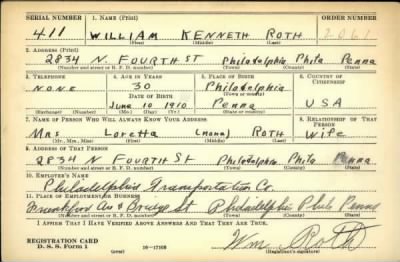 SERIAL NUMBER 1. NAME (Print) ORDER NUMBER
411 WILLIAM KENNETH ROTH 2061
(First) (Middle) (Last)
2. ADDRESS (Print)
2834 N. FOURTH ST Philadelphia Phila Penna
(Number and street or R. F. D. number) (Town) (County) (State)
3. TELEPHONE 4. AGE IN YEARS 5. PLACE OF BIRTH 6. COUNTRY OF CITIZENSHIP
NONE 30 Philadelphia
DATE OF BIRTH (Town or county)
June 10 1910 Penna USA
(Exchange) (Number) (Mo.) (Day) (Yr.) (State or country)
7. NAME OF PERSON WHO WILL ALWAYS KNOW YOUR ADDRESS 8. RELATIONSHIP OF THAT PERSON
Mrs Loretta (none) ROTH Wife
(Mr., Mrs., Miss) (First) (Middle) (Last)
9. ADDRESS OF THAT PERSON
2834 N FOURTH ST Philadelphia Phila Penna
(Number and street or R. F. D. number) (Town) (County) (State)
10. EMPLOYER'S NAME
Philadelphia Transportation Co.
11. PLACE OF EMPLOYMENT OR BUSINESS
Frankford Ave & Bridge St Philadelphia Phila Penna
(Number and street or R. F. D. number) (Town) (County) (State)
I AFFIRM THAT I HAVE VERIFIED ABOVE ANSWERS AND THAT THEY ARE TRUE.
REGISTRATION CARD
D. S. S. Form 1 (over) 16—17105 Wm Roth
(Registrant's signature)